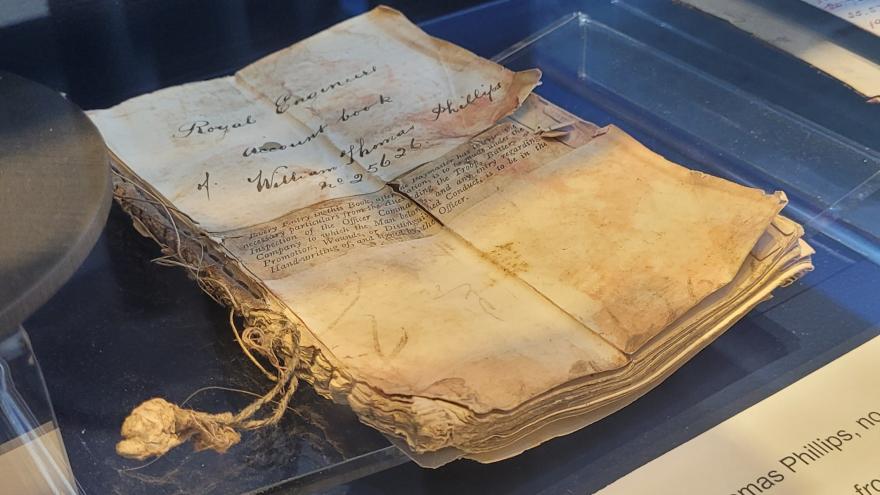 Royal Engineers
account book
of William Thomas Phillips
no 25626
Every Entry in this Book, after the Paymaster has
necessary particulars from the Attesting, is to be made under the
Inspection of the Officer Commanding the Troop, Battery or
Company to which the Man belongs, and any entry regarding
Promotion, Wounds, or Distinguished Conduct, is to be in the
Handwriting of, and signed by the Officer.
omas Phillips, no
fro